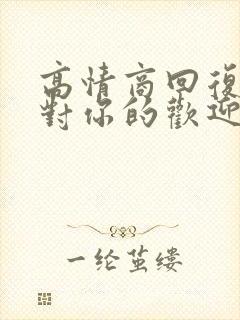 高情商回復
對你的歡迎
一纶茧缕